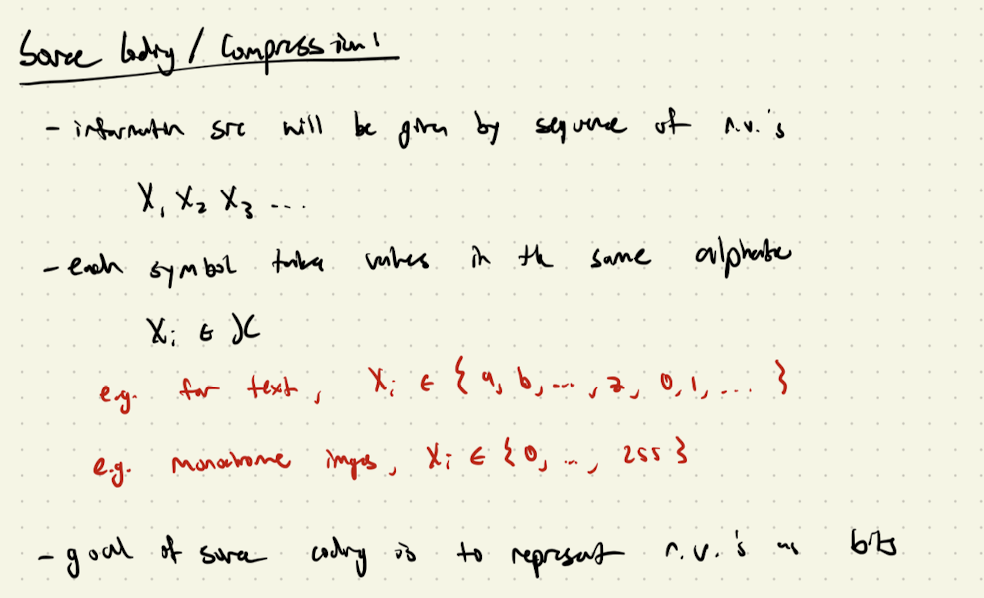 Source Coding / Compression!
- information src will be given by sequence of r.v.'s
X₁ X₂ X₃ ...
- each symbol takes values in the same alphabet
Xᵢ ∈ 𝒳
e.g. for text, Xᵢ ∈ { a, b, ..., z, 0, 1, ... }
e.g. monochrome images, Xᵢ ∈ { 0, ..., 255 }
- goal of source coding is to represent r.v.'s as bits